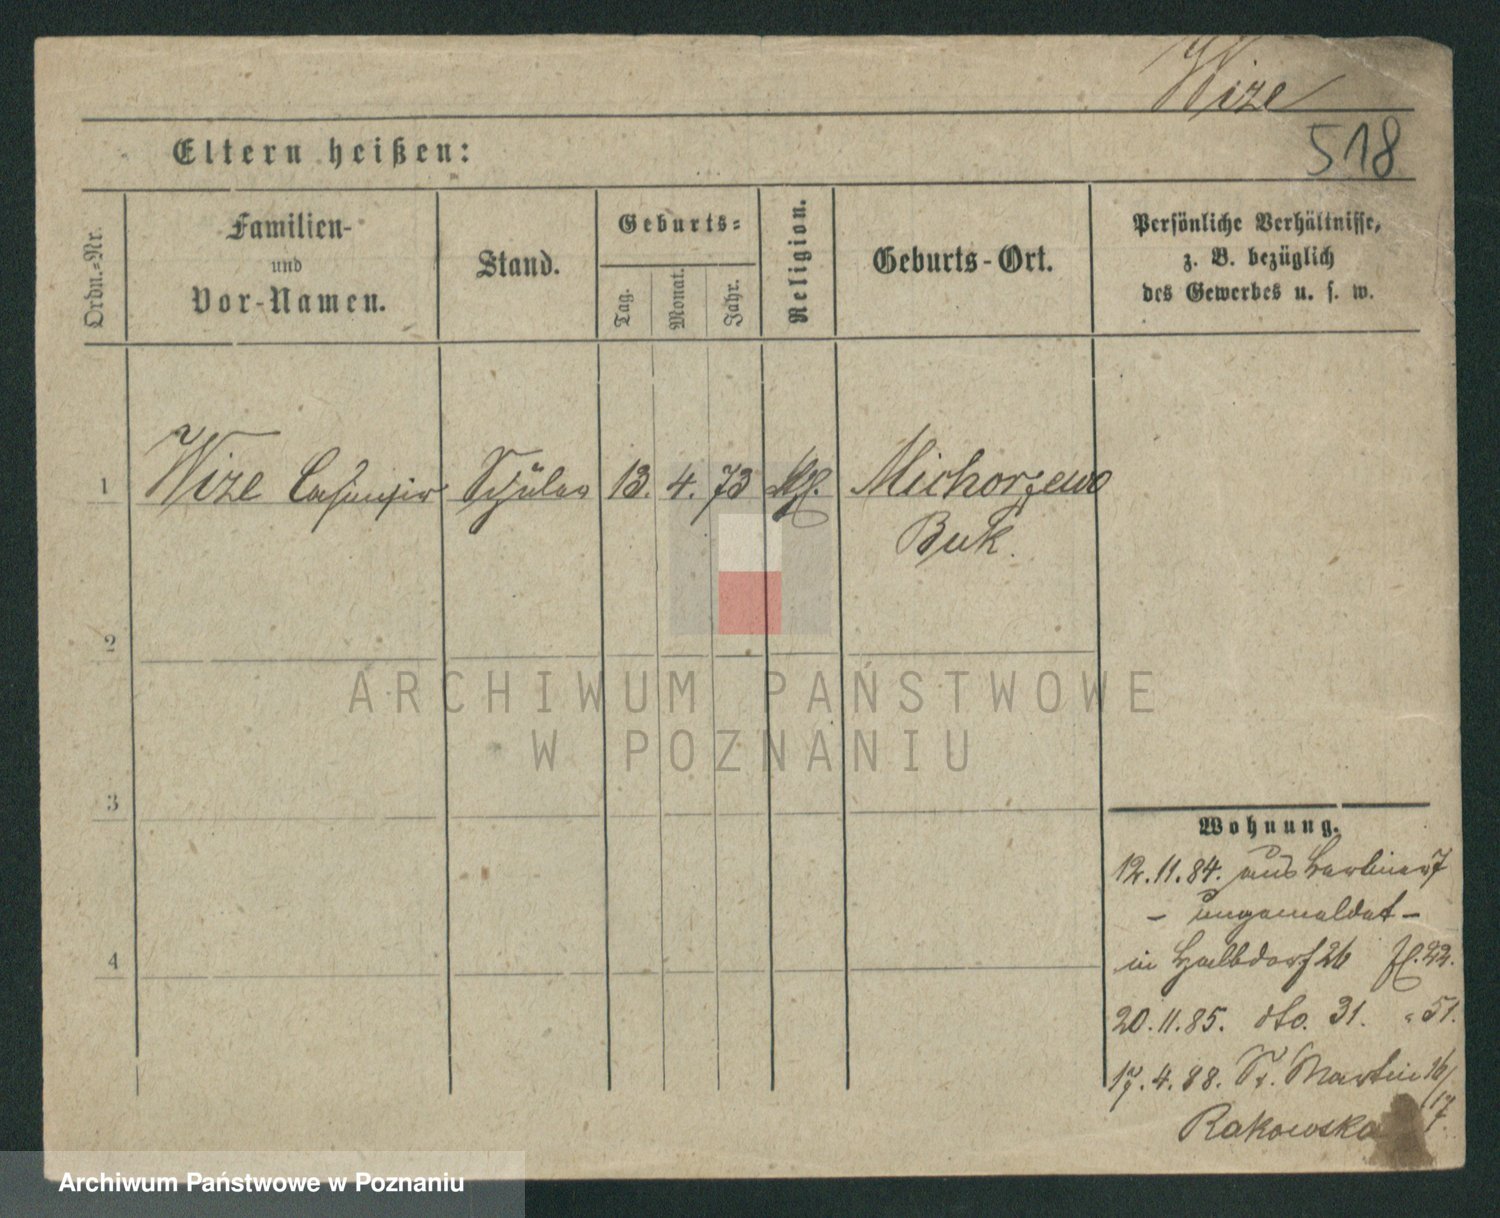 Wize
518
Eltern heißen:
Ordn.-Nr.
Familien-
und
Vor-Namen.
Stand.
Geburts-
Tag.
Monat.
Jahr.
Religion.
Geburts-Ort.
Persönliche Verhältnisse,
z. B. bezüglich
des Gewerbes u. s. w.
1 Wize Casimir Schüler 13. 4. 73 Michorzewo
Buk.
2
3
4
Wohnung.
12.11.84. aus Berlinerst
- ungemeldet -
in Halbdorf 26 fl. 22.
20.11.85. dto. 31. " 51.
17.4.88. St. Martin 16/17.
Rakowska
ARCHIWUM PAŃSTWOWE
W POZNANIU
Archiwum Państwowe w Poznaniu